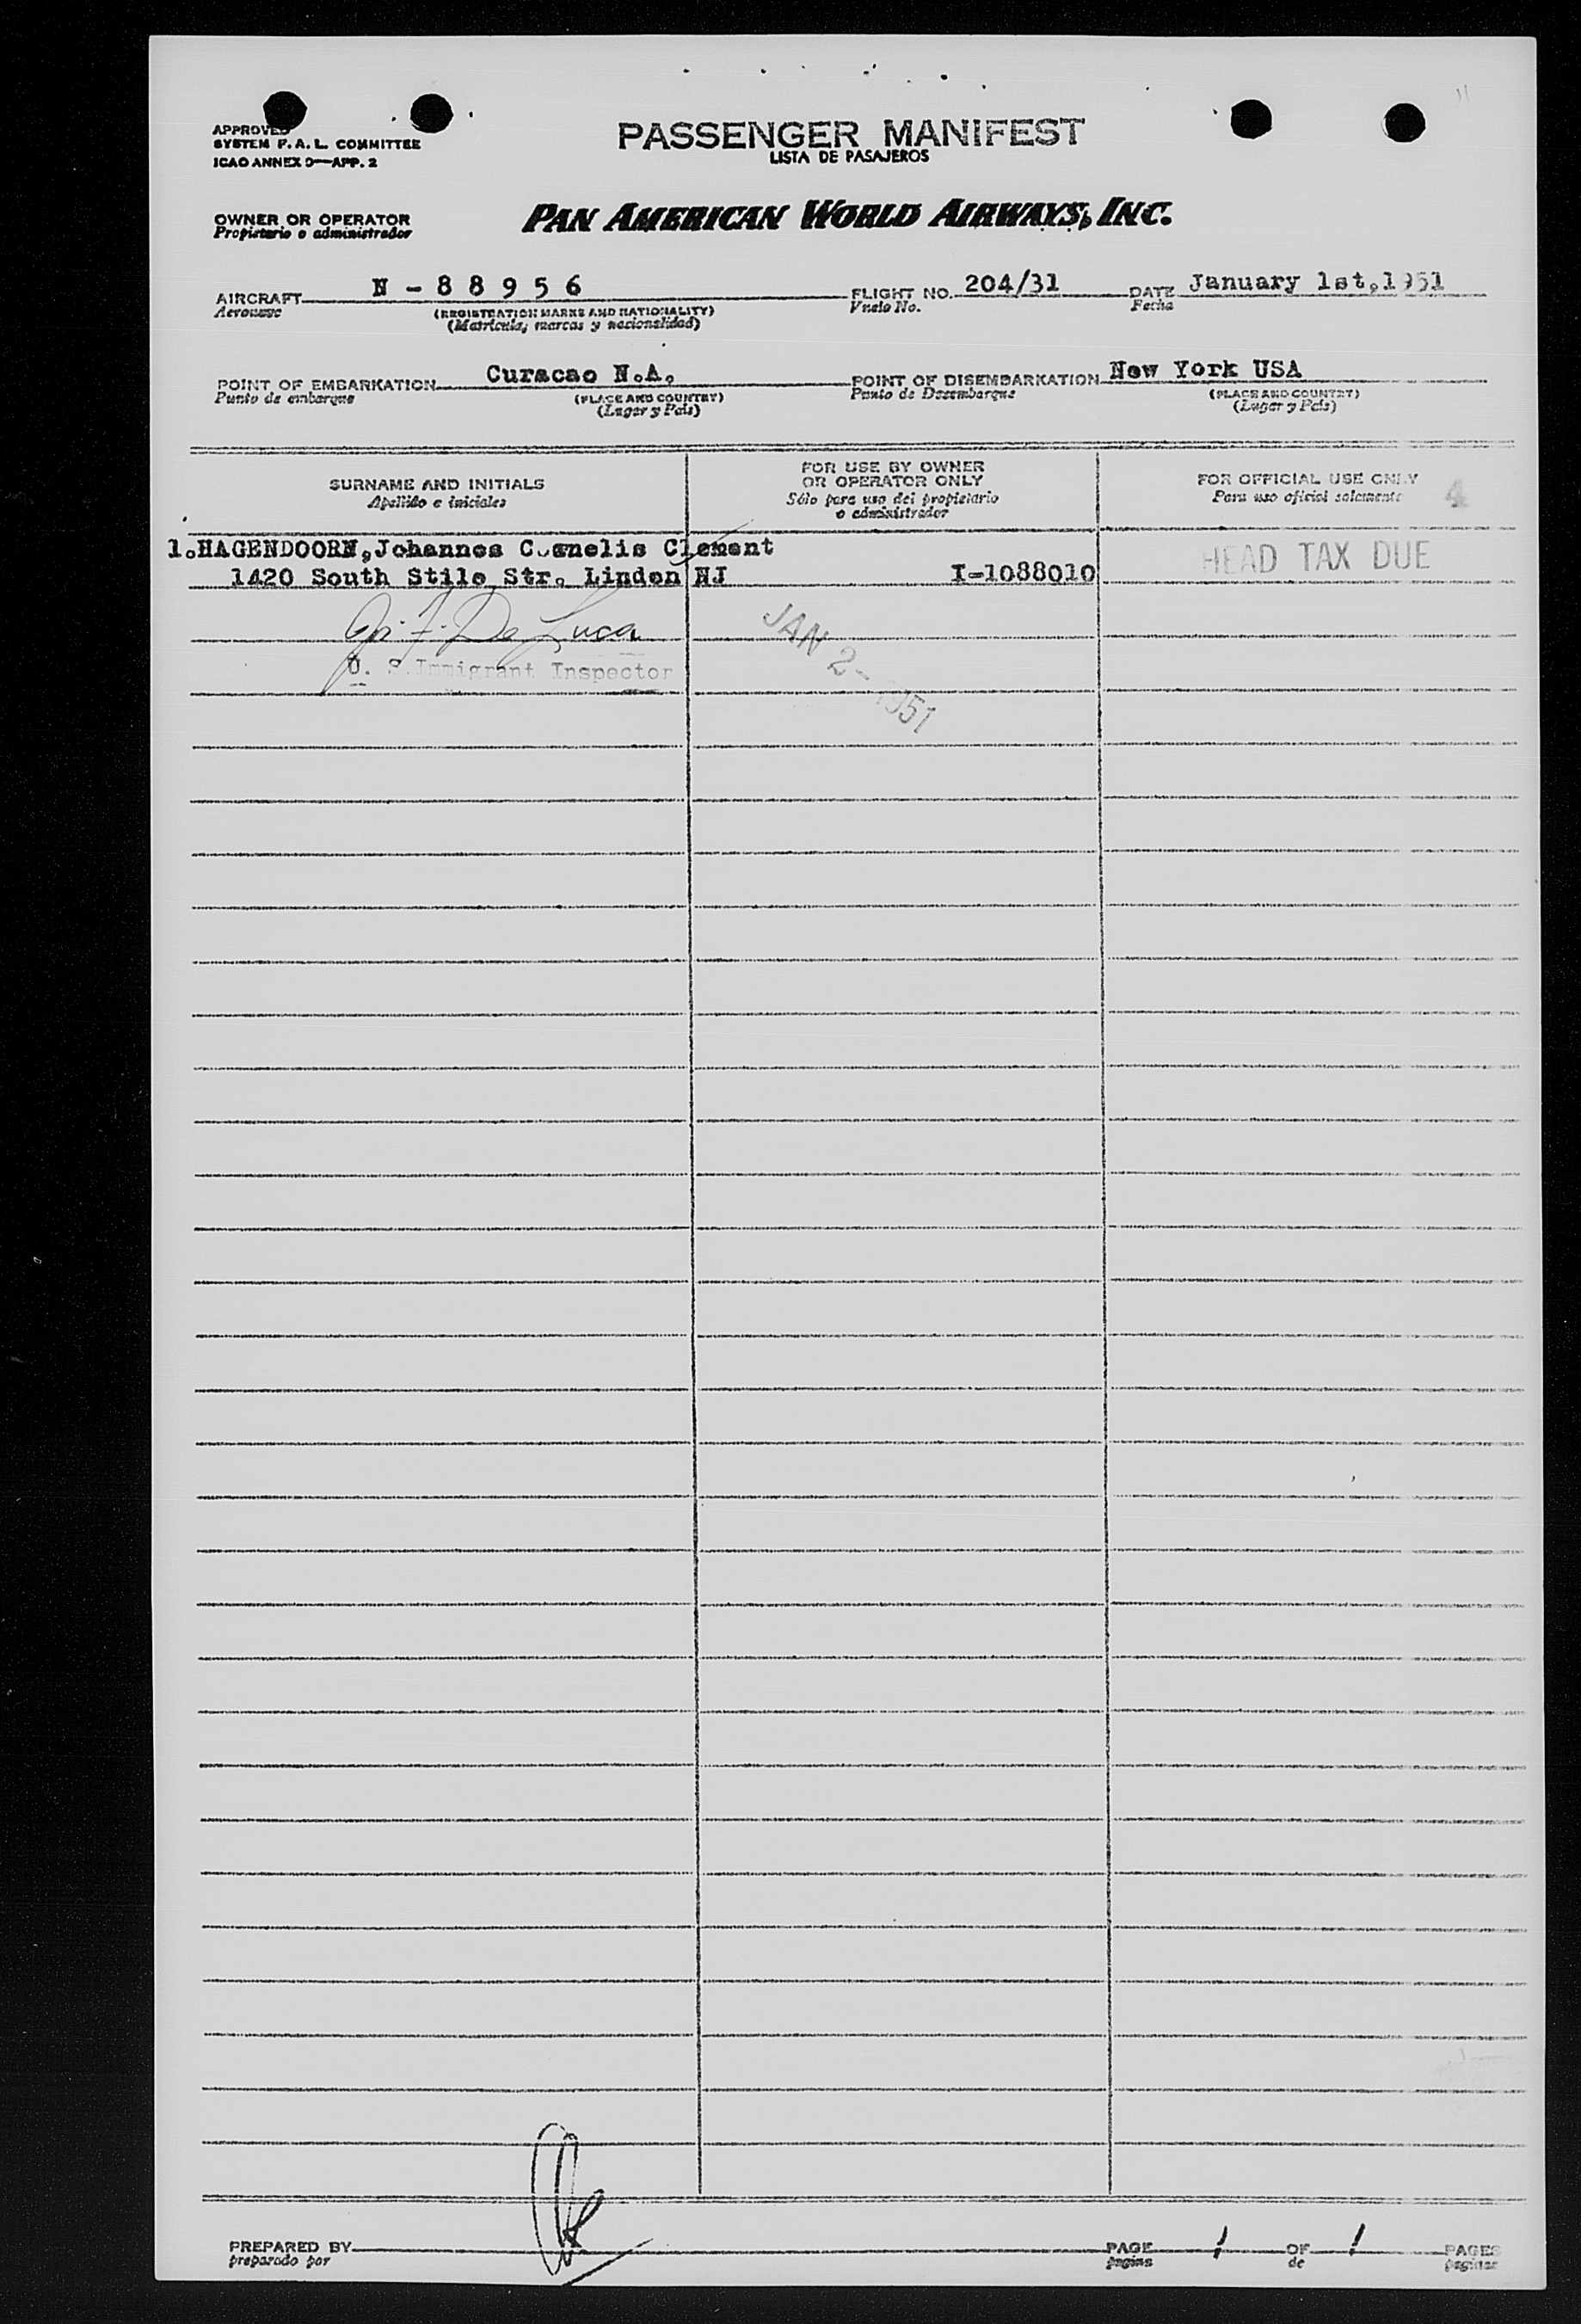 APPROVED
SYSTEM F. A. L. COMMITTEE
ICAO ANNEX 9—APP. 2
PASSENGER MANIFEST
LISTA DE PASAJEROS
OWNER OR OPERATOR
Propietario o administrador
PAN AMERICAN WORLD AIRWAYS, INC.
AIRCRAFT N - 8 8 9 5 6 FLIGHT NO. 204/31 DATE January 1st,1951
Aeronave (REGISTRATION MARKS AND NATIONALITY) Vuelo No. Fecha
(Matricula, marcas y nacionalidad)
POINT OF EMBARKATION Curacao N.A. POINT OF DISEMBARKATION New York USA
Punto de embarque (PLACE AND COUNTRY) Punto de Desembarque (PLACE AND COUNTRY)
(Lugar y País) (Lugar y País)
SURNAME AND INITIALS
Apellido e iniciales
FOR USE BY OWNER
OR OPERATOR ONLY
Sólo para uso del propietario
o administrador
FOR OFFICIAL USE ONLY 4
Para uso oficial solamente
1.HAGENDOORN,Johannes Cornelis Clement HEAD TAX DUE
1420 South Stile Str. Linden NJ I-1088010
De Luca
U. S. Immigrant Inspector
JAN 2- 1951
PREPARED BY PAGE 1 OF 1 PAGES
preparado por pagina de paginas